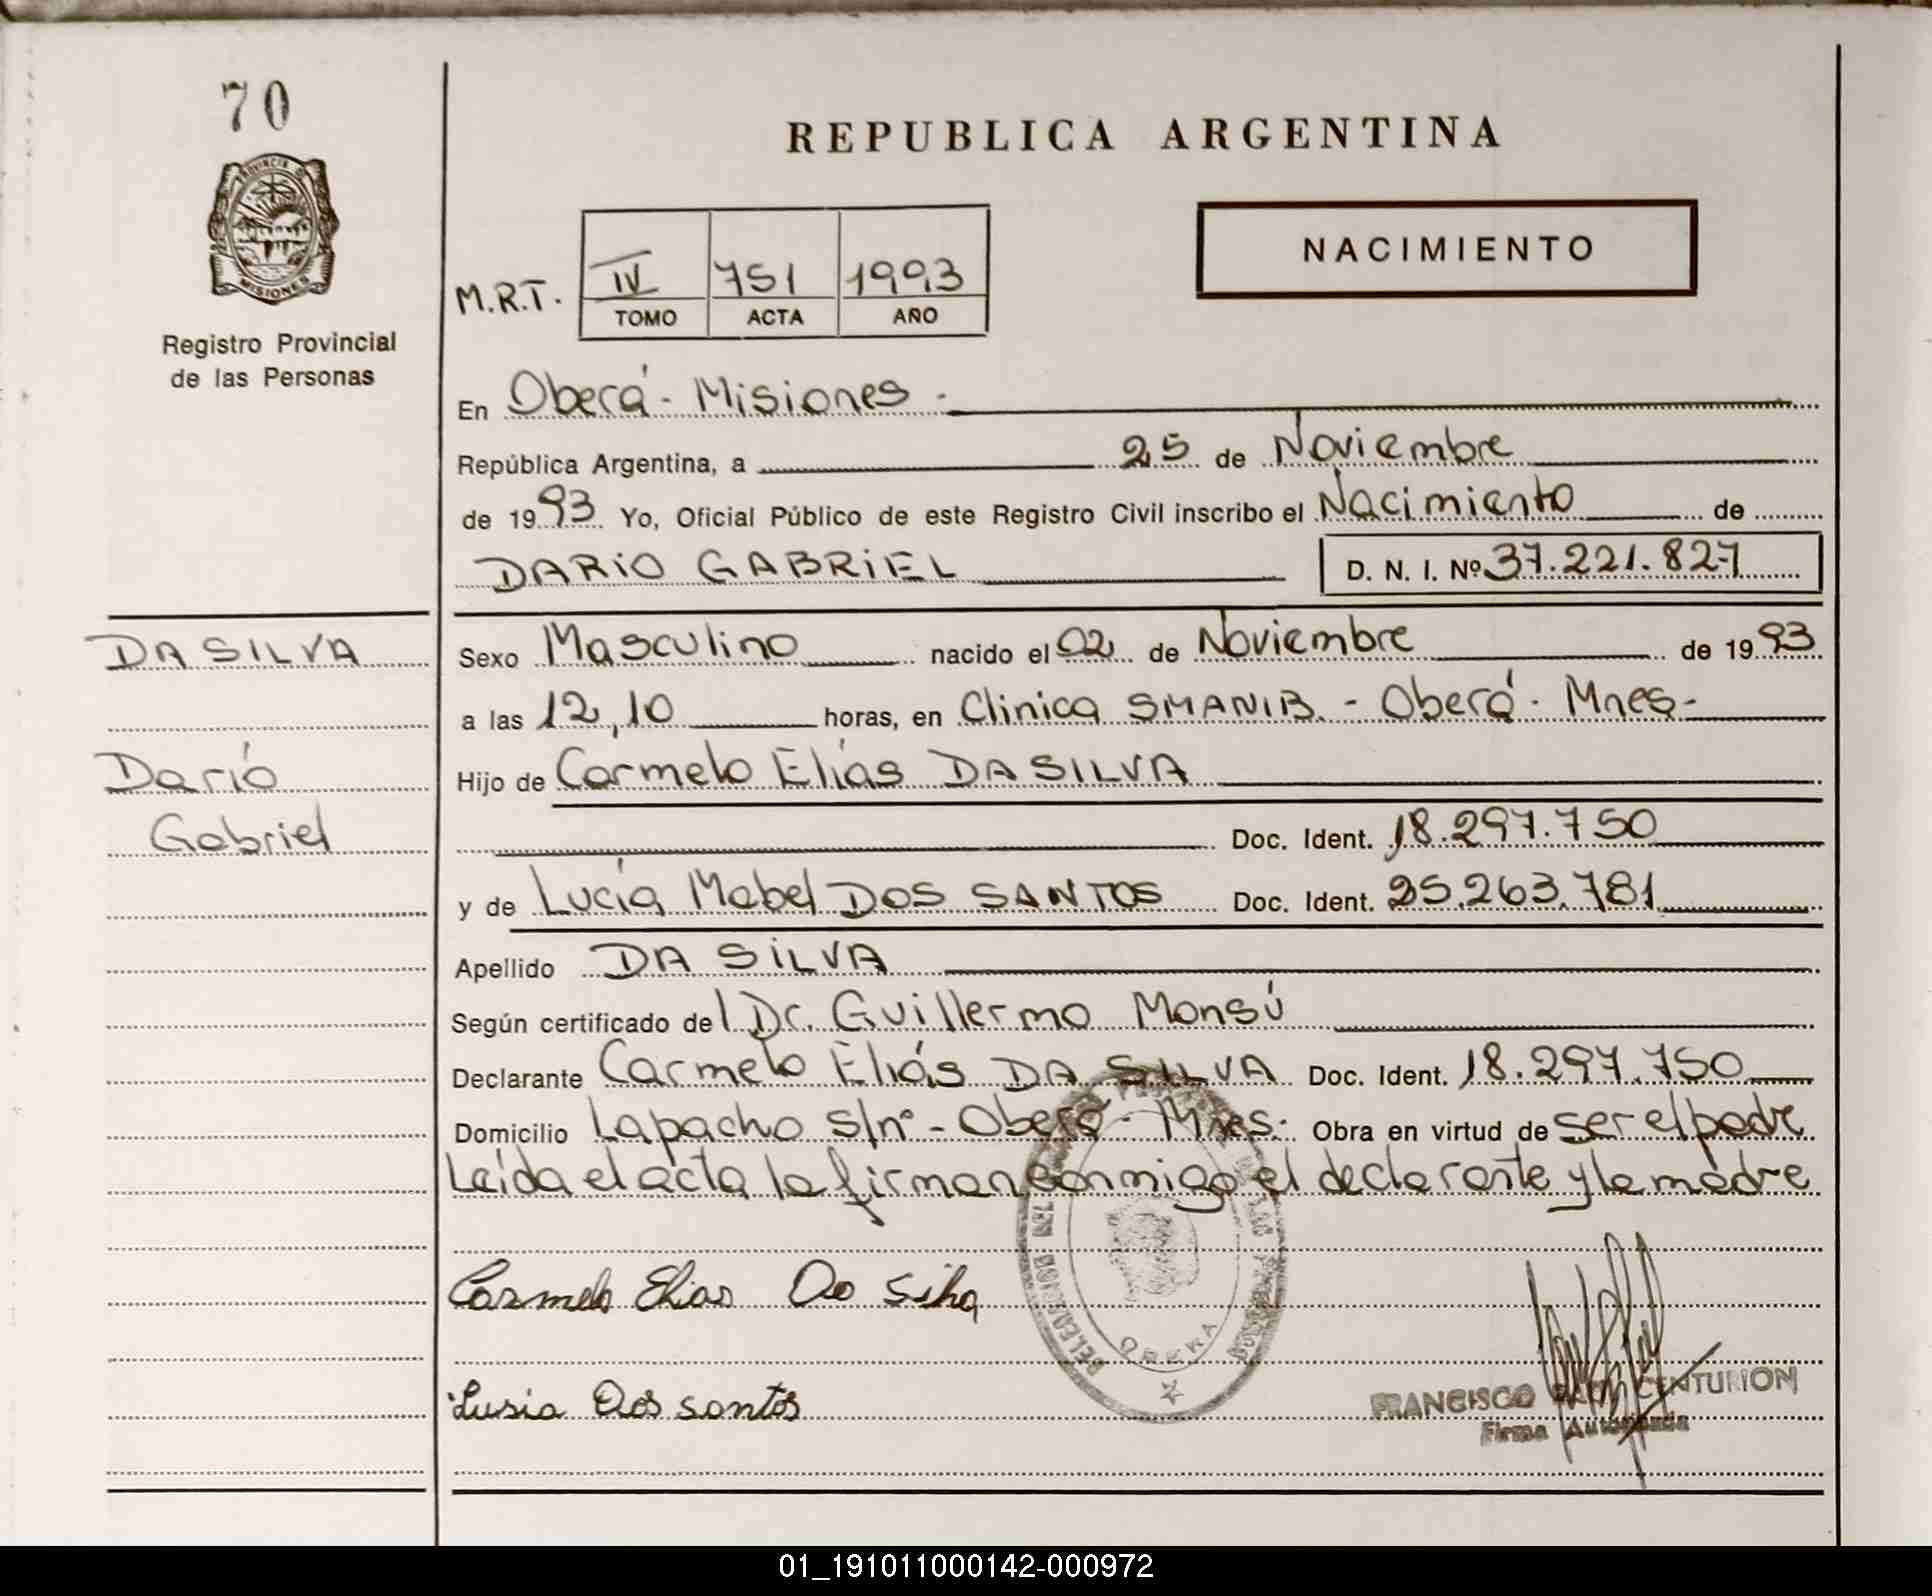 70
PROVINCIA DE
MISIONES
Registro Provincial
de las Personas
REPUBLICA ARGENTINA
NACIMIENTO
M.R.T. IV 751 1993
TOMO ACTA AÑO
En Oberá - Misiones -
República Argentina, a 25 de Noviembre
de 1993 Yo, Oficial Público de este Registro Civil inscribo el Nacimiento de
DARIO GABRIEL D. N. I. Nº 37.221.827
DA SILVA
Darío
Gabriel
Sexo Masculino nacido el 02 de Noviembre de 1993
a las 12,10 horas, en Clinica SMANIB. - Oberá - Mnes -
Hijo de Carmelo Elías DA SILVA
Doc. Ident. 18.297.750
y de Lucía Mabel DOS SANTOS Doc. Ident. 25.263.781
Apellido DA SILVA
Según certificado del Dr. Guillermo Monsú
Declarante Carmelo Eliás DA SILVA Doc. Ident. 18.297.750
Domicilio Lapacho s/nº - Oberá - Mnes. Obra en virtud de ser el padre
Leída el acta la firman conmigo el declarante y la madre
Carmelo Elias Da Silva
Lusia Dos santos
DELEGACION DEL
DE LAS PERSONAS
OBERA
FRANCISCO CENTURION
Firma Autorizada
01_191011000142-000972